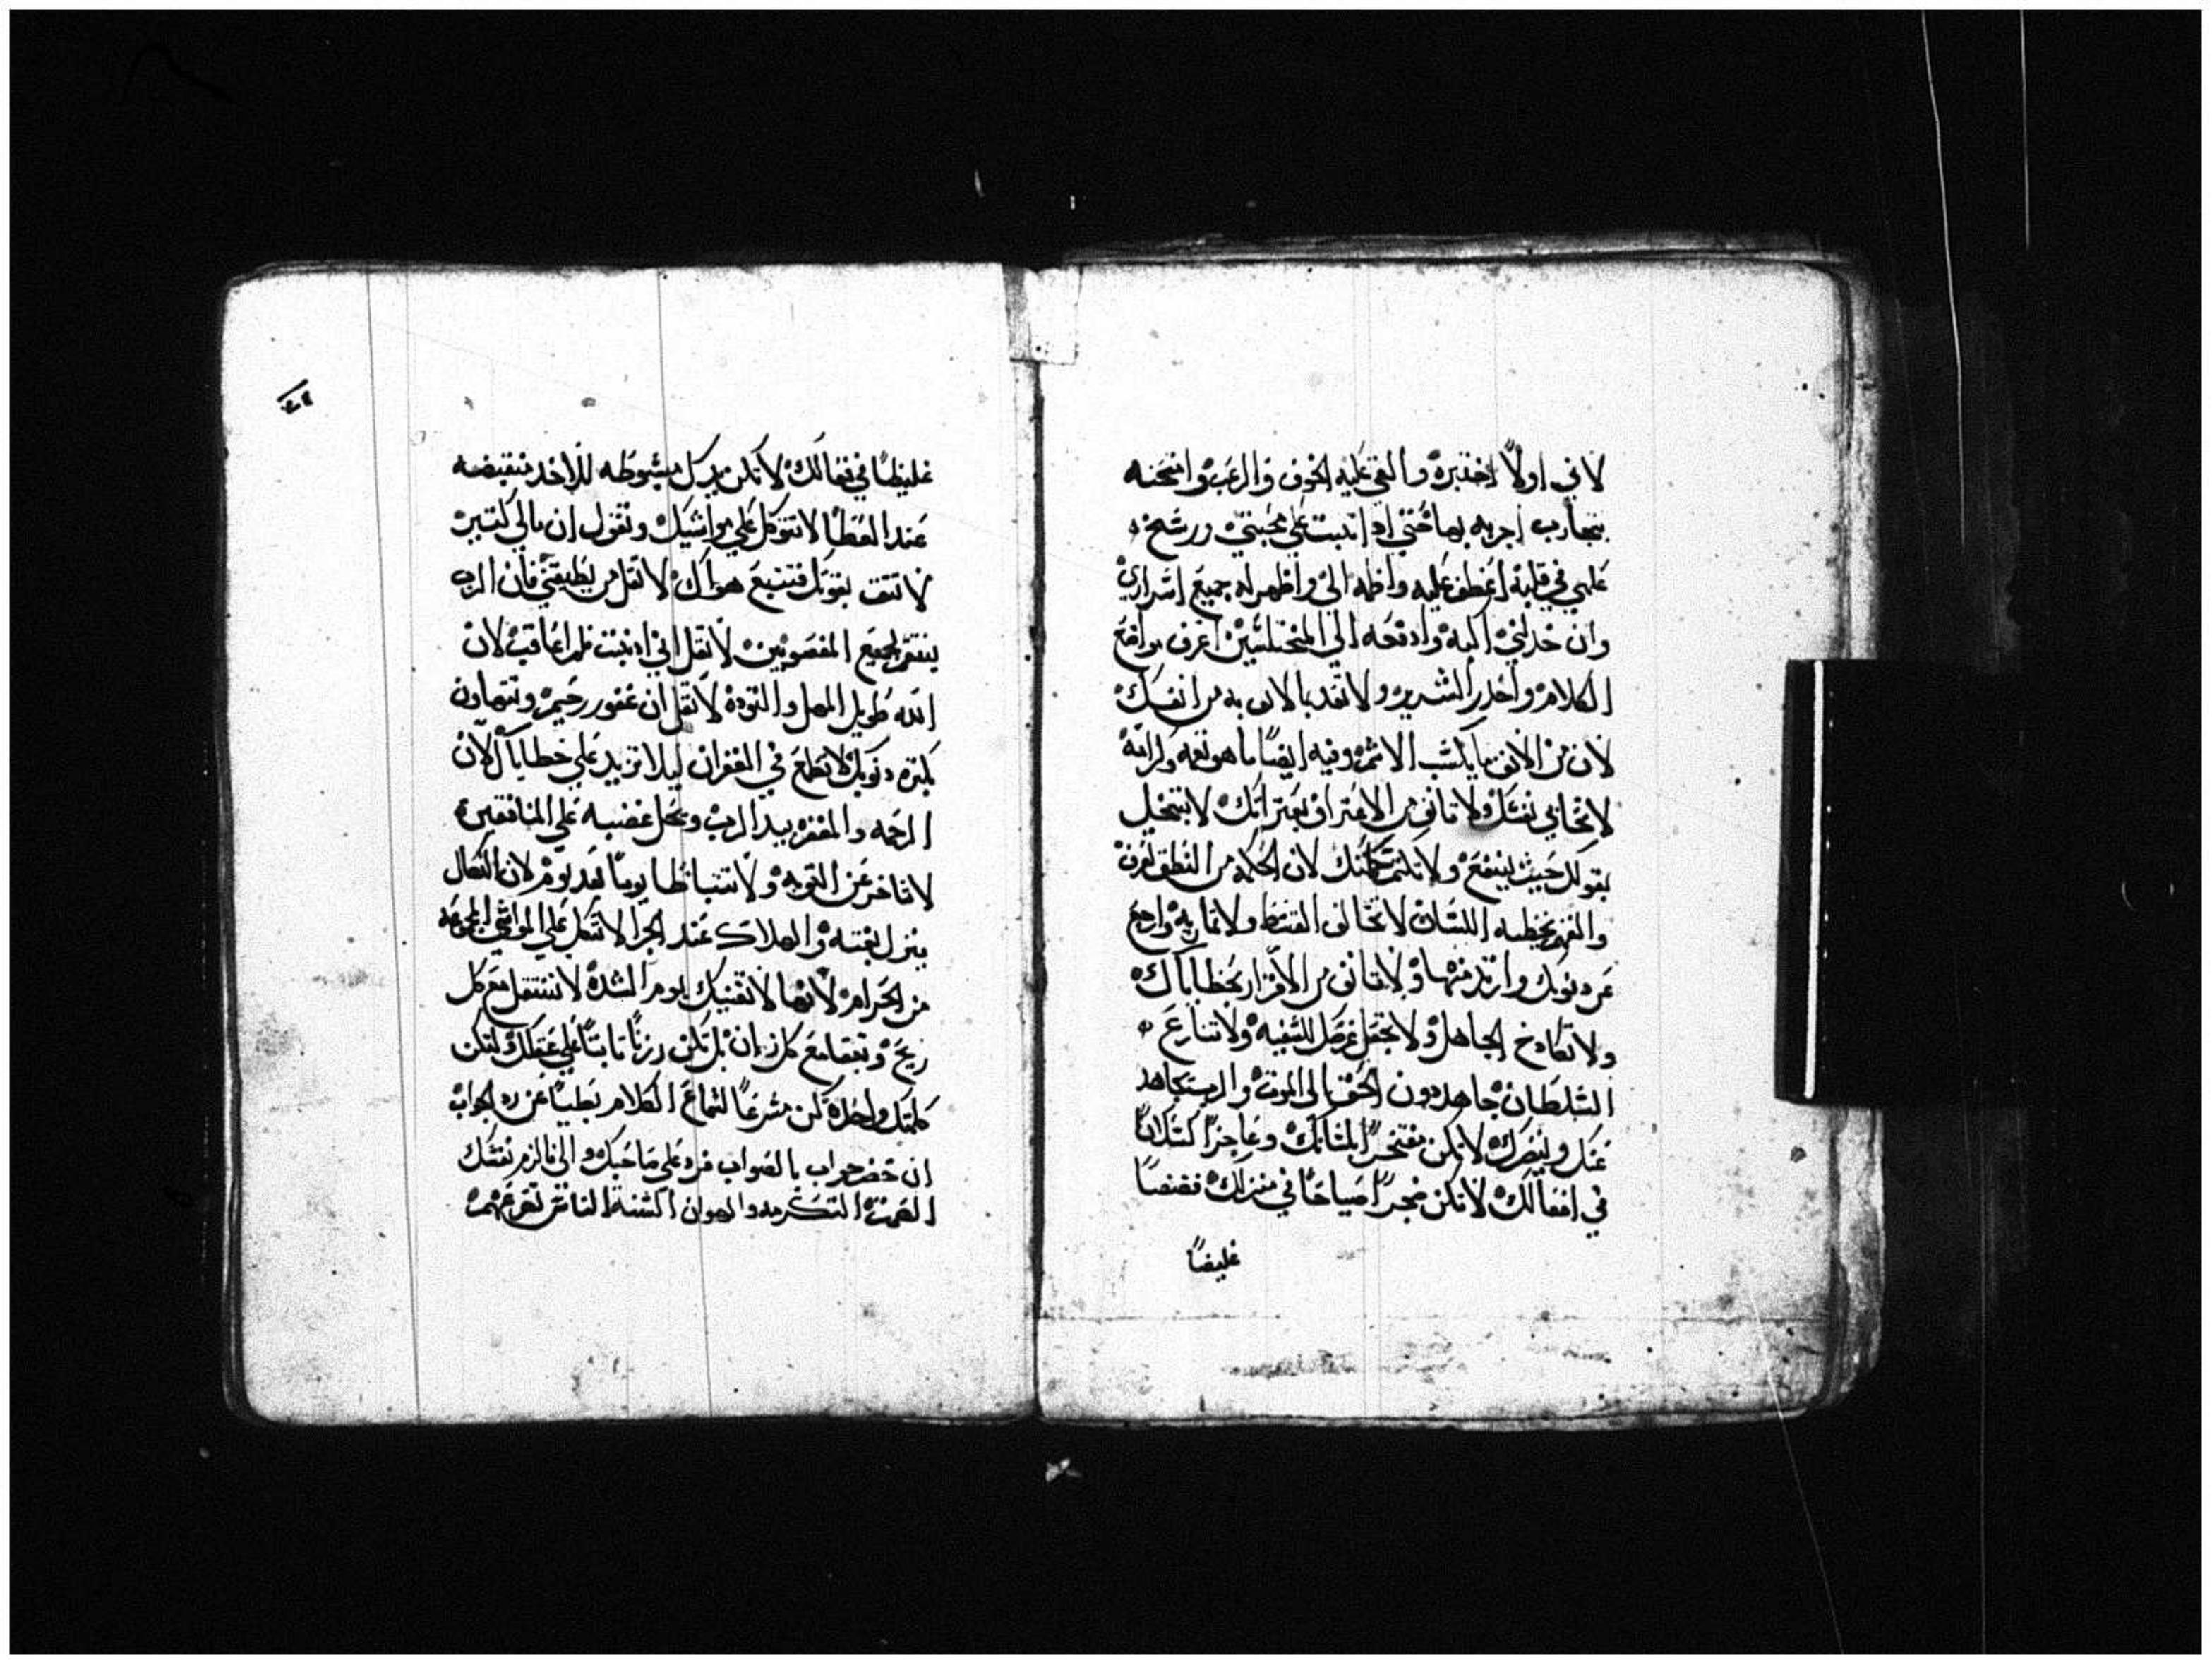 لاني اولاً اختبره والقي عليه الخوف والرعب وامتحنه
بتجارب اجربه بها حتي اذا تبت علي محبتي ورسخ
علمي في قلبه اعطف عليه واظمه الي واظهر له جميع اسراري
وان خدلني اكبه وادفعه الي المختلسين اعرف مواضع
الكلام واحدر الشرير ولا تقد بالانف به من انفسك
لان من الانف ما يكسب الاتم وفيه ايضاً ما هو نعمه وكرامه
لا تحابي نفسك ولا تانف من الاعتراف بعتراتك لا تبخل
بقولك حيث ينفع ولا تكتم حكمتك لان الحكمه من النطق تعرف
والفهم بخطبه اللسان لا تخالف القسط ولا تمار به وارجع
عن دنوبك وارتد منها ولا تانف من الاقرار بخطاياك
ولا تكادخ الجاهل ولا تجعل عرضك للسفيه ولا تنازع
السلطان جاهد دون الحق الي الموت والرب يجاهد
عنك وينصرك لا تكن مفتخراً بلسانك وعاجزاً كسلاناً
في افعالك لا تكن ضجراً صياحاً في منزلك نضنضاً
غليضاً
غليظاً في فعالك لا تكن يدك مبسوطه للاخد منقبضه
عند العطا لا تتوكل علي مواشيك وتقول ان مالي كتير
لا تتق بقوتك فتتبع هواك لا تقل من يطيقني فان الرب
ينتقم لجميع المغصوبين لا تقل اني ادنبت فلم اعاقب لان
الله طويل المهل والتوده لا تقل ان غفور رحيم وتتهاون
بكتره دنوبك لا تطمع في الغفران ليلا تزيد علي خطاياك لان
الرحمه والمغفره بيد الرب ويحل غضبه علي المنافقين
لا تاخر عن التوبه ولا تتباطا يوماً بعد يوم لان النكال
ينزل بغته والهلاك عند الجزا لا تتكل علي المواشي المجموعه
من الحرام لانها لا تغنيك يوم الشده لا تنتقل مع كل
ريح وتبقا مع كل زمان بل تكن رزناً تابتاً علي عقلك لتكن
كلمتك واحده كن مسرعاً لسماع الكلام بطياً عن رد الجواب
ان حضر جواب بالصواب فرد علي صاحبك والا فالزم نفسك
الصمت التكرمه والهوان السنة الناس تعرعهم